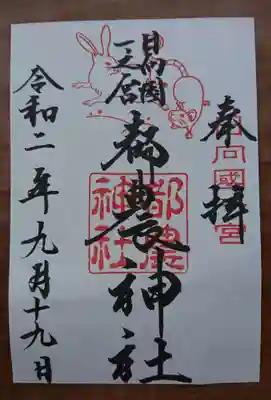 奉拝
日向国
一之宮
都農神社
都農
神社
令和二年九月十九日